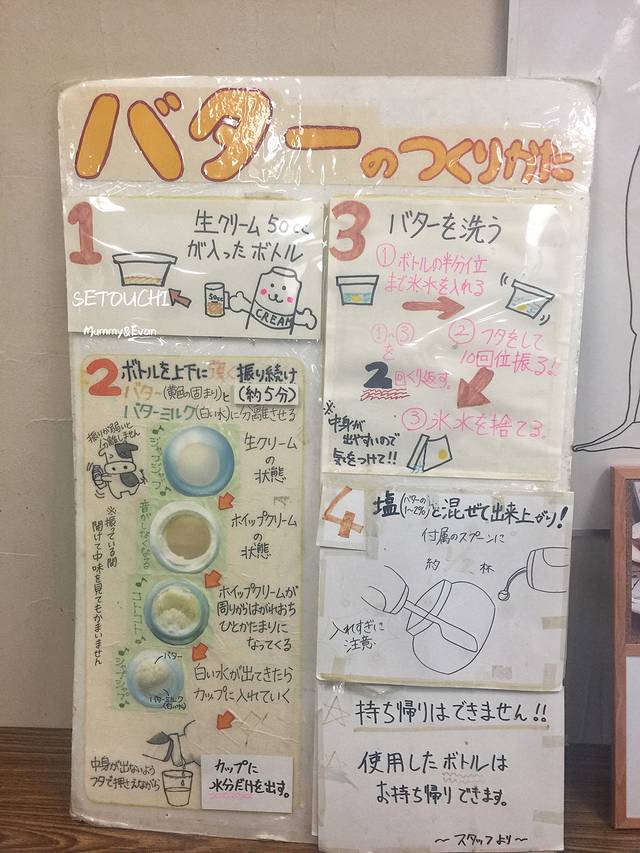 バターのつくりかた
1
生クリーム50cc
が入ったボトル
50cc
CREAM
SETOUCHI
Mummy&Evan
2 ボトルを上下に強く振り続け
(約5分)
バター(黄色の固まり)と
バターミルク(白い水)に分離させる
振りが弱いと
分離しません
シャブシャブ♪
生クリーム
の
状態
音がしなくなる
ホイップクリーム
の
状態
※振っている間
開けて中味を見てもかまいません
コトコト♪
ホイップクリームが
周りからはがれおち
ひとかたまりに
なってくる
シャブシャブ♪
バター
バターミルク
(白い水)
白い水が出てきたら
カップに入れていく
中身が出ないよう
フタで押さえながら
カップに
水分だけを出す。
3 バターを洗う
①ボトルの半分位
まで氷水を入れる
②フタをして
10回位振る!
③氷水を捨てる。
①~③
を
2回くり返す。
※中身が
出やすいので
気をつけて!!
4 塩(バターの1~2%)と混ぜて出来上がり!
付属のスプーンに
約1/2杯
入れすぎに
注意
持ち帰りはできません!!
使用したボトルは
お持ち帰りできます。
~スタッフより~